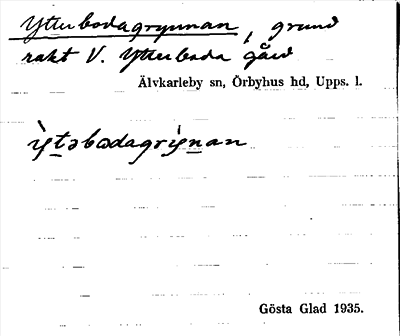 Ytterbodagrynnan, grund
rakt V. Ytterboda gård
Älvkarleby sn, Örbyhus hd, Upps. l.
ỳ̱təbɷdagrỳ̱nan
Gösta Glad 1935.